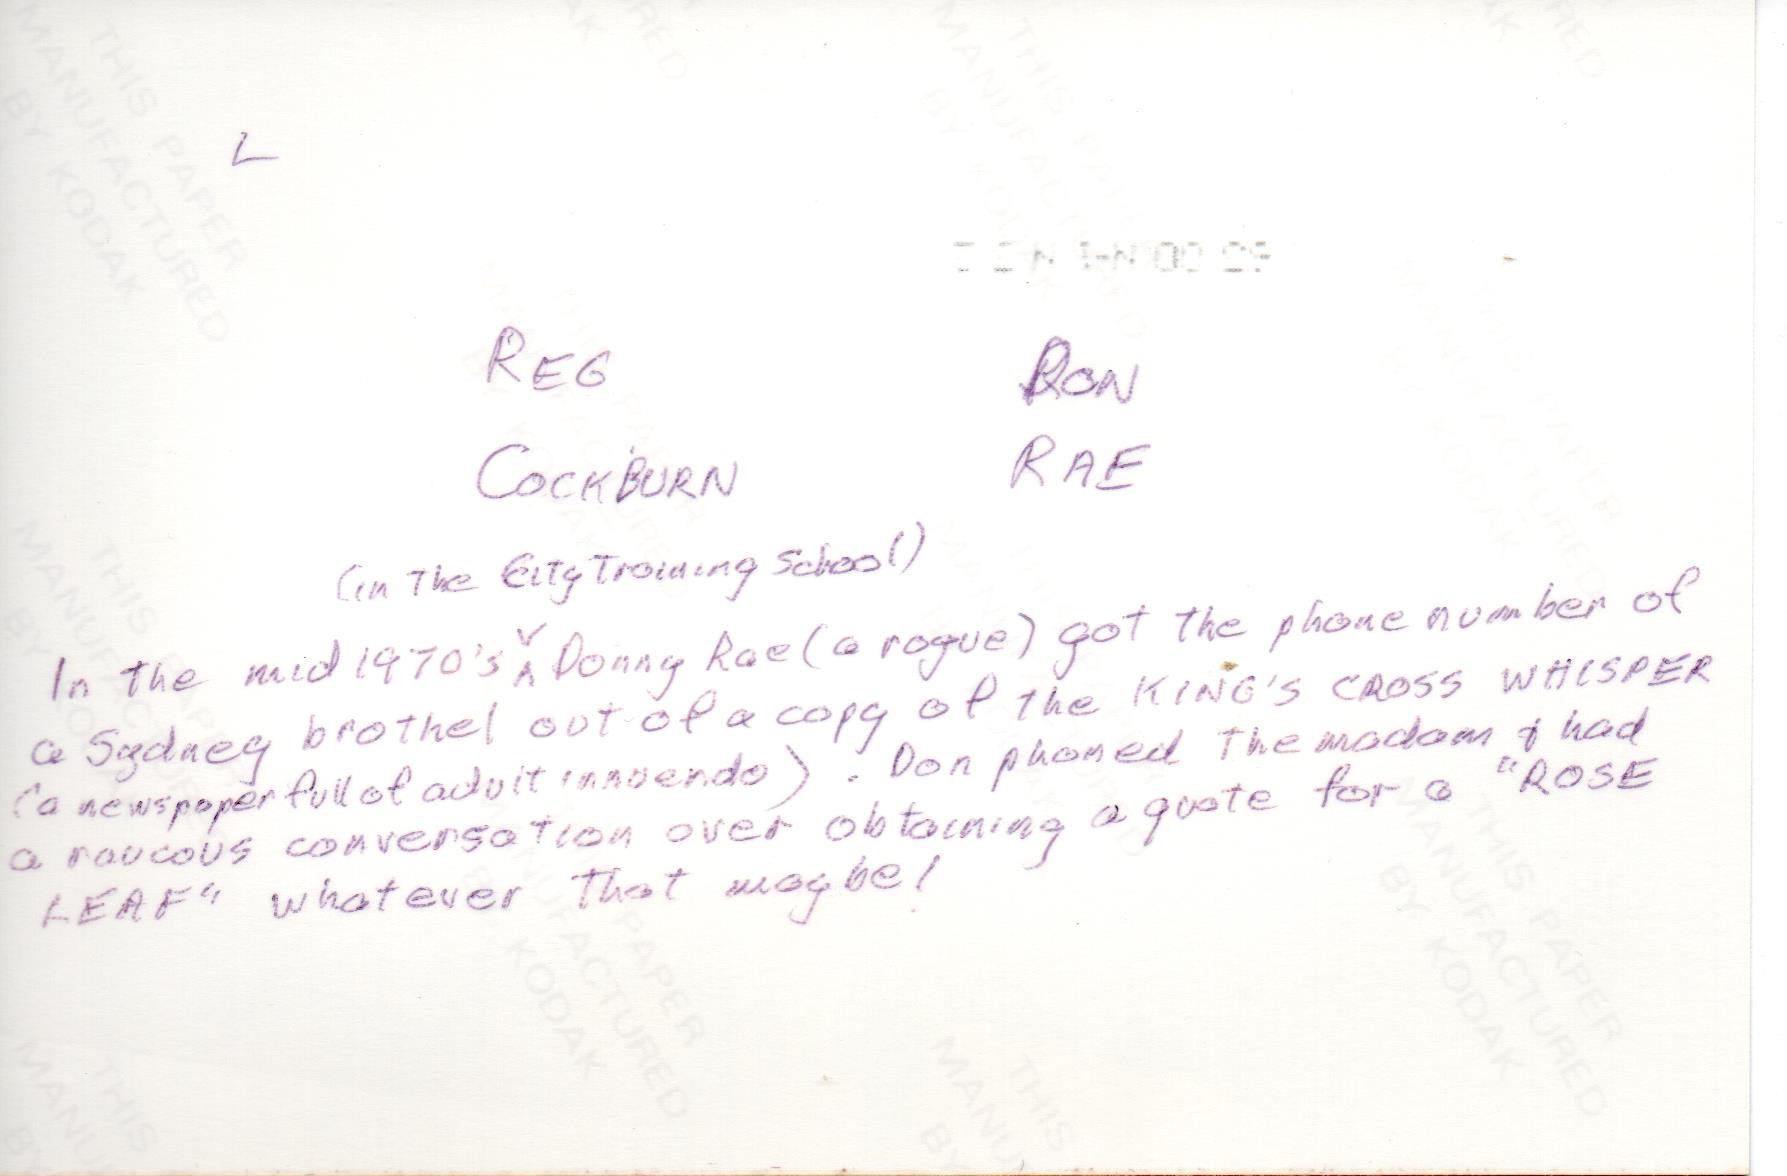 L
REG RON
COCKBURN RAE
(in the City Training School)
In the mid 1970's Donny Rae (a rogue) got the phone number of
a Sydney brothel out of a copy of the KING'S CROSS WHISPER
(a newspaper full of adult innuendo). Don phoned the madam & had
a raucous conversation over obtaining a quote for a "ROSE
LEAF" whatever that maybe!
THIS PAPER
MANUFACTURED
BY KODAK